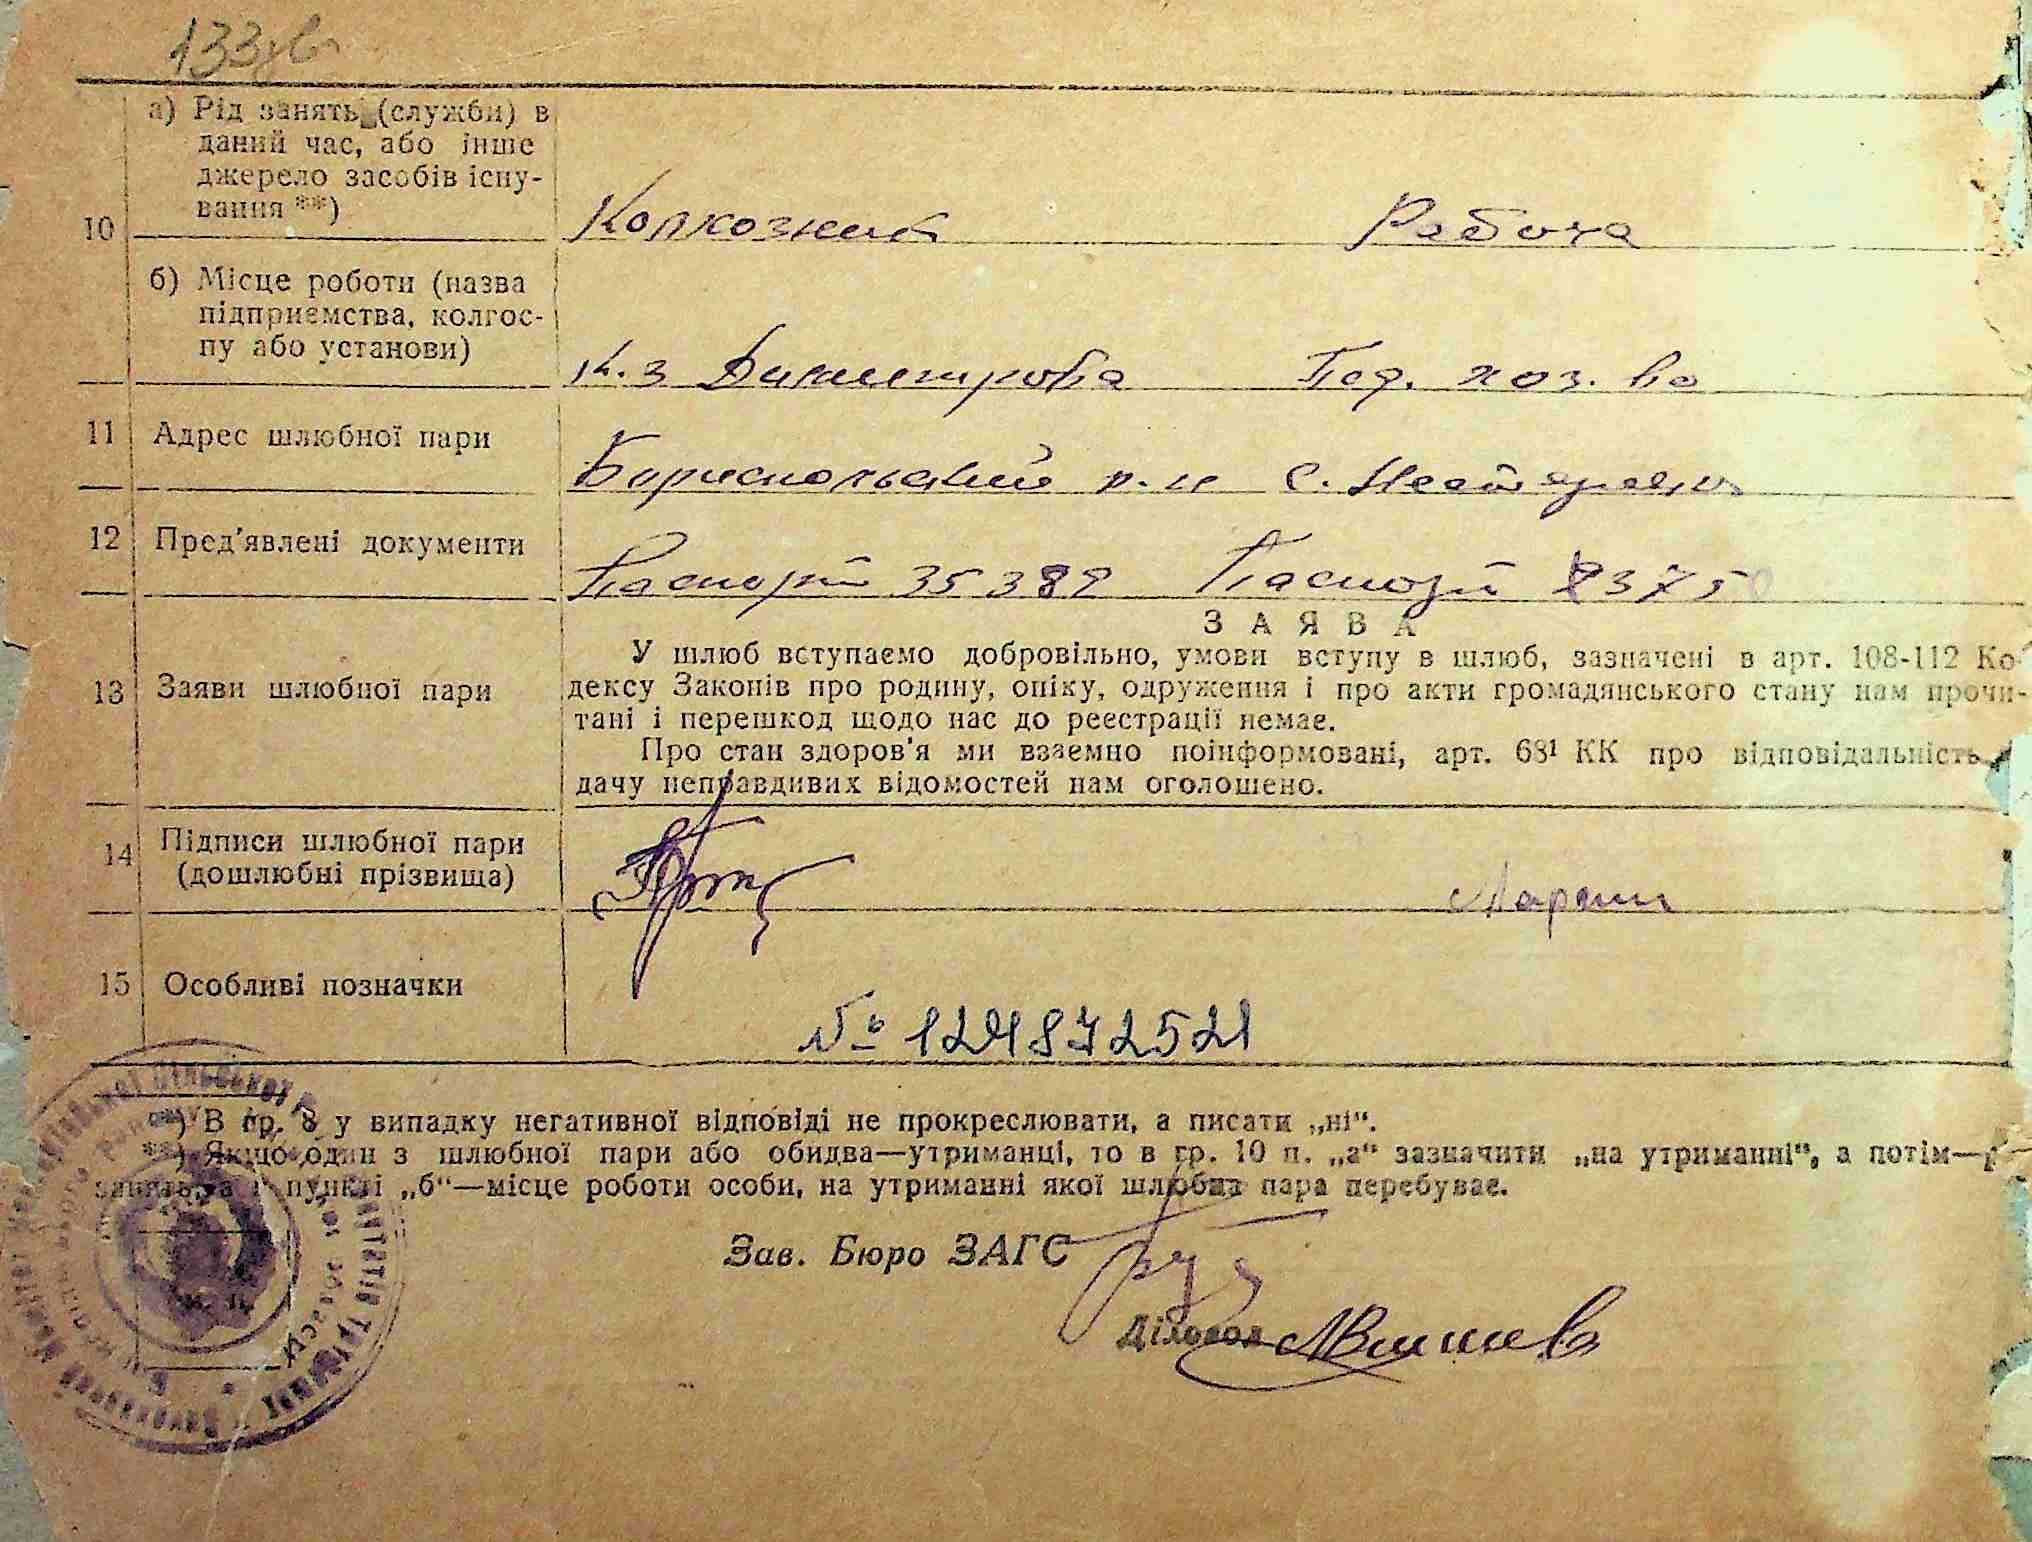 133
10
а) Рід занять (служби) в
даний час, або інше
джерело засобів існу-
вання **)
Колхозник Рабоча
б) Місце роботи (назва
підприємства, колгос-
пу або установи)
к.з Димитрова Под. хоз. во
11 Адрес шлюбної пари
Бориспольский р-н с.
12 Пред'явлені документи
Паспорт 35389 Паспорт
13 Заяви шлюбної пари
ЗАЯВА
У шлюб вступаємо добровільно, умови вступу в шлюб, зазначені в арт. 108-112 Ко-
дексу Законів про родину, опіку, одруження і про акти громадянського стану нам прочи-
тані і перешкод щодо нас до реєстрації немає.
Про стан здоров'я ми взаємно поінформовані, арт. 68¹ КК про відповідальність
дачу неправдивих відомостей нам оголошено.
14 Підписи шлюбної пари
(дошлюбні прізвища)
15 Особливі позначки
№ 124872521
*) В гр. 8 у випадку негативної відповіді не прокреслювати, а писати „ні“.
**) Якщо один з шлюбної пари або обидва—утриманці, то в гр. 10 п. „а“ зазначити „на утриманні“, а потім—
пункті „б“—місце роботи особи, на утриманні якої шлюбна пара перебуває.
Зав. Бюро ЗАГС
Діловод